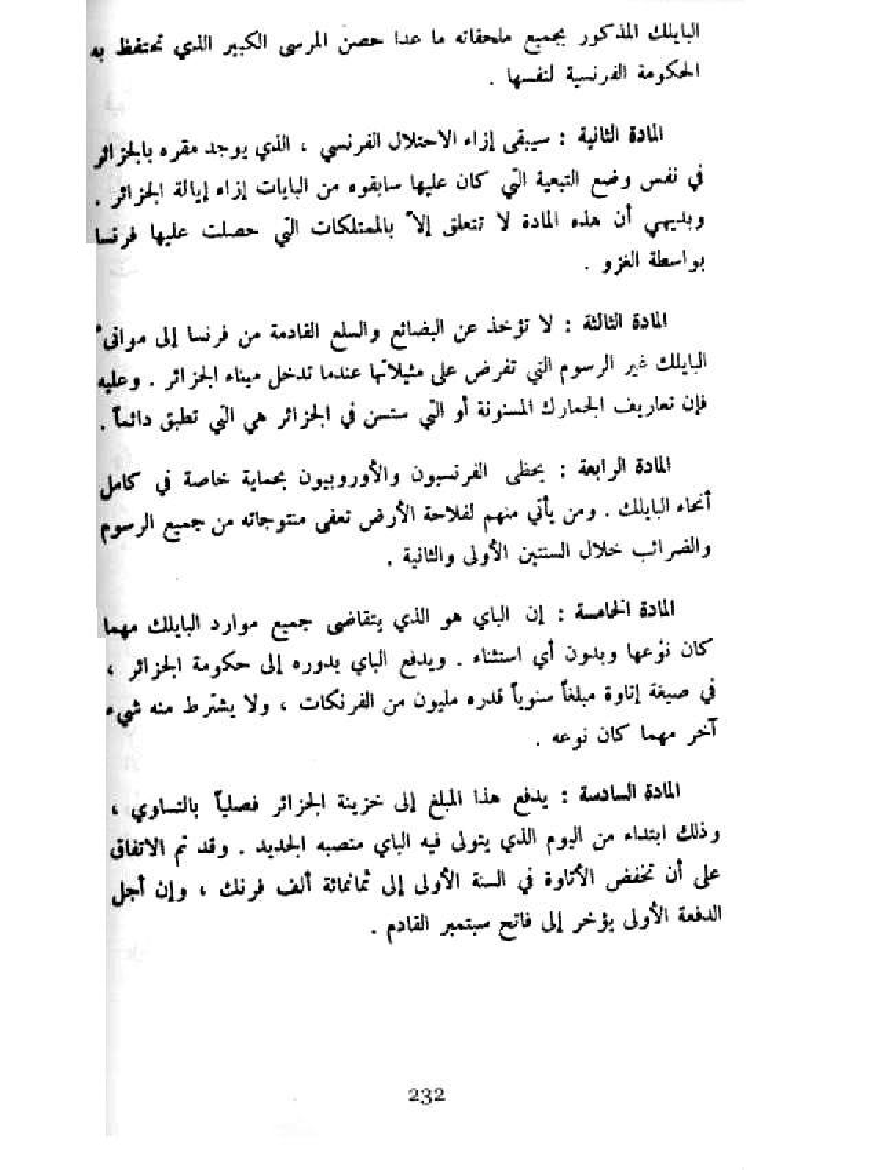 البايلك المذكور بجميع ملحقاته ما عدا حصن المرسى الكبير الذي تحتفظ به
الحكومة الفرنسية لنفسها .
المادة الثانية : سيبقى إزاء الاحتلال الفرنسي ، الذي يوجد مقره بالجزائر
في نفس وضع التبعية التي كان عليها سابقوه من البايات إزاء إيالة الجزائر .
وبديهي أن هذه المادة لا تتعلق إلاّ بالممتلكات التي حصلت عليها فرنسا
بواسطة الغزو .
المادة الثالثة : لا تؤخذ عن البضائع والسلع القادمة من فرنسا إلى موانىء
البايلك غير الرسوم التي تفرض على مثيلاتها عندما تدخل ميناء الجزائر . وعليه
فإن تعاريف الجمارك المسنونة أو التي ستسن في الجزائر هي التي تطبق دائماً .
المادة الرابعة : يحظى الفرنسيون والأوروبيون بحماية خاصة في كامل
أنحاء البايلك . ومن يأتي منهم لفلاحة الأرض تعفى منتوجاته من جميع الرسوم
والضرائب خلال السنتين الأولى والثانية .
المادة الخامسة : إن الباي هو الذي يتقاضى جميع موارد البايلك مهما
كان نوعها وبدون أي استثناء . ويدفع الباي بدوره إلى حكومة الجزائر ،
في صيغة إتاوة مبلغاً سنوياً قدره مليون من الفرنكات ، ولا يشترط منه شيء
آخر مهما كان نوعه .
المادة السادسة : يدفع هذا المبلغ إلى خزينة الجزائر فصلياً بالتساوي ،
وذلك ابتداء من اليوم الذي يتولى فيه الباي منصبه الجديد . وقد تم الاتفاق
على أن تخفض الأتاوة في السنة الأولى إلى ثمانمائة ألف فرنك ، وإن أجل
الدفعة الأولى يؤخر إلى فاتح سبتمبر القادم .
232